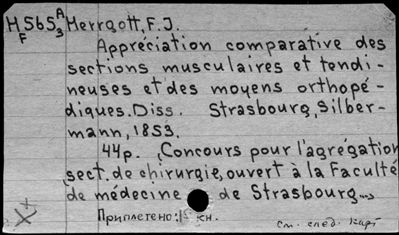 H565 A3 Merrgott, F. J.
F
Appréciation comparative des
sections musculaires et tendi-
neuses et des moyens orthopé-
diques. Diss. Strasbourg, Silber-
mann, 1853.
44p. (Concours pour l'agrégation,
sect. de chirurgie, ouvert à la Faculté
de médecine de Strasbourg...)
Приплетено: кн.
см. след. карт